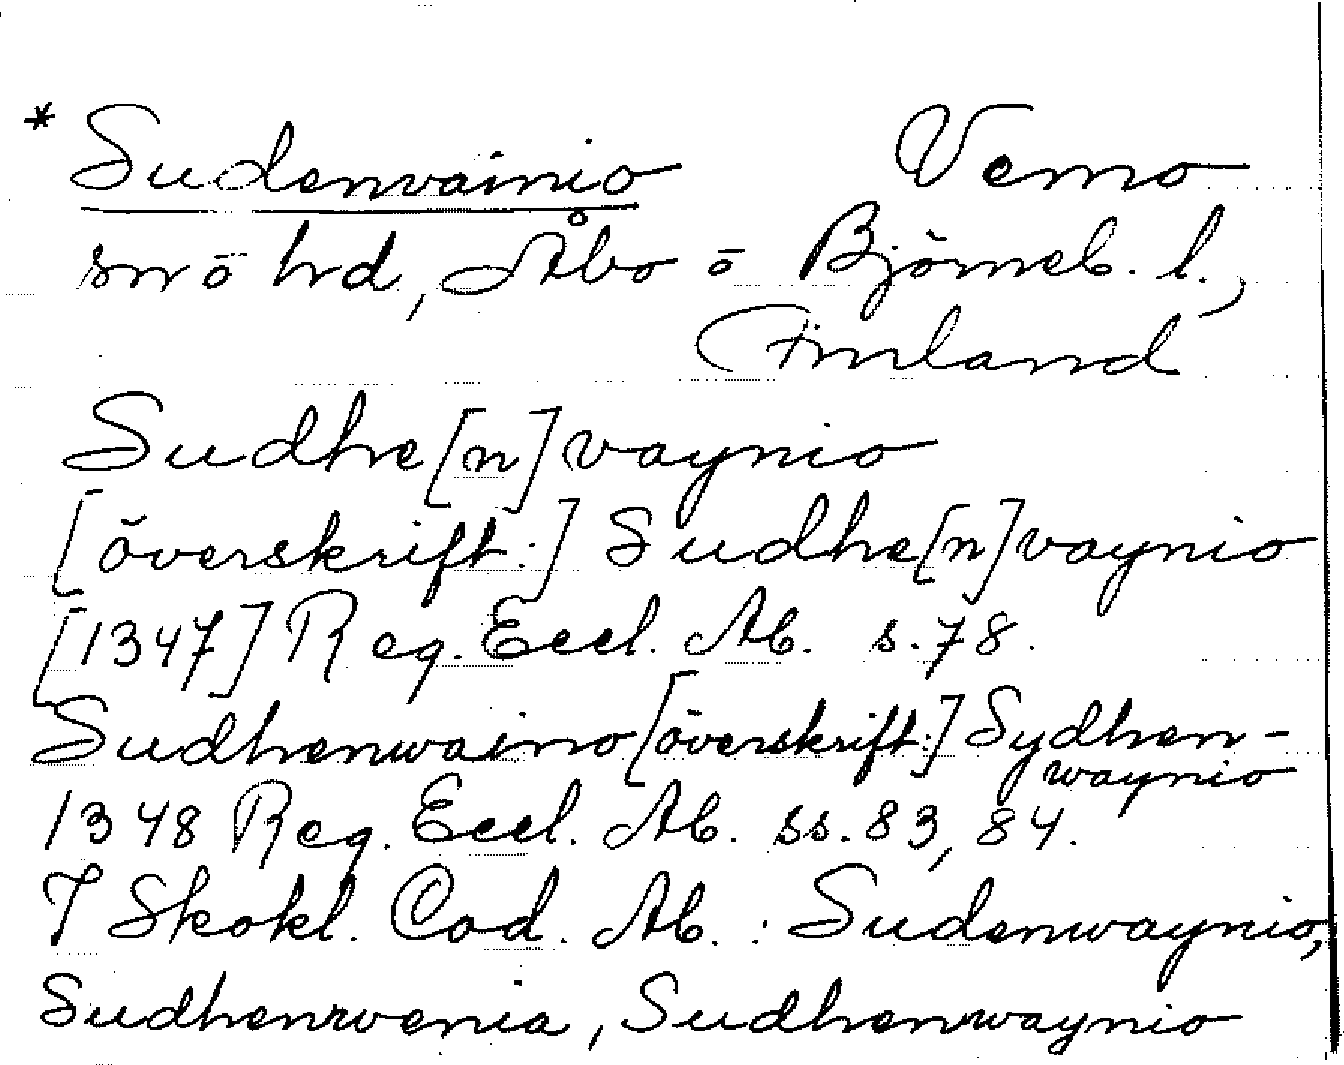 * Sudenvainio Vemo
sn ō hd, Åbo ō Björneb. l.,
Finland
Sudhe[n]vaynio
[överskift:] Sudhe[n]vaynio
[1347] Reg. Eccl. Ab. s. 78.
Sudhenwaino [överskrift:] Sydhen-
waynio
1348 Reg. Eccl. Ab. ss. 83, 84.
I Skokl. Cod. Ab. : Sudenwaynio,
Sudhenwenia, Sudhenwaynio